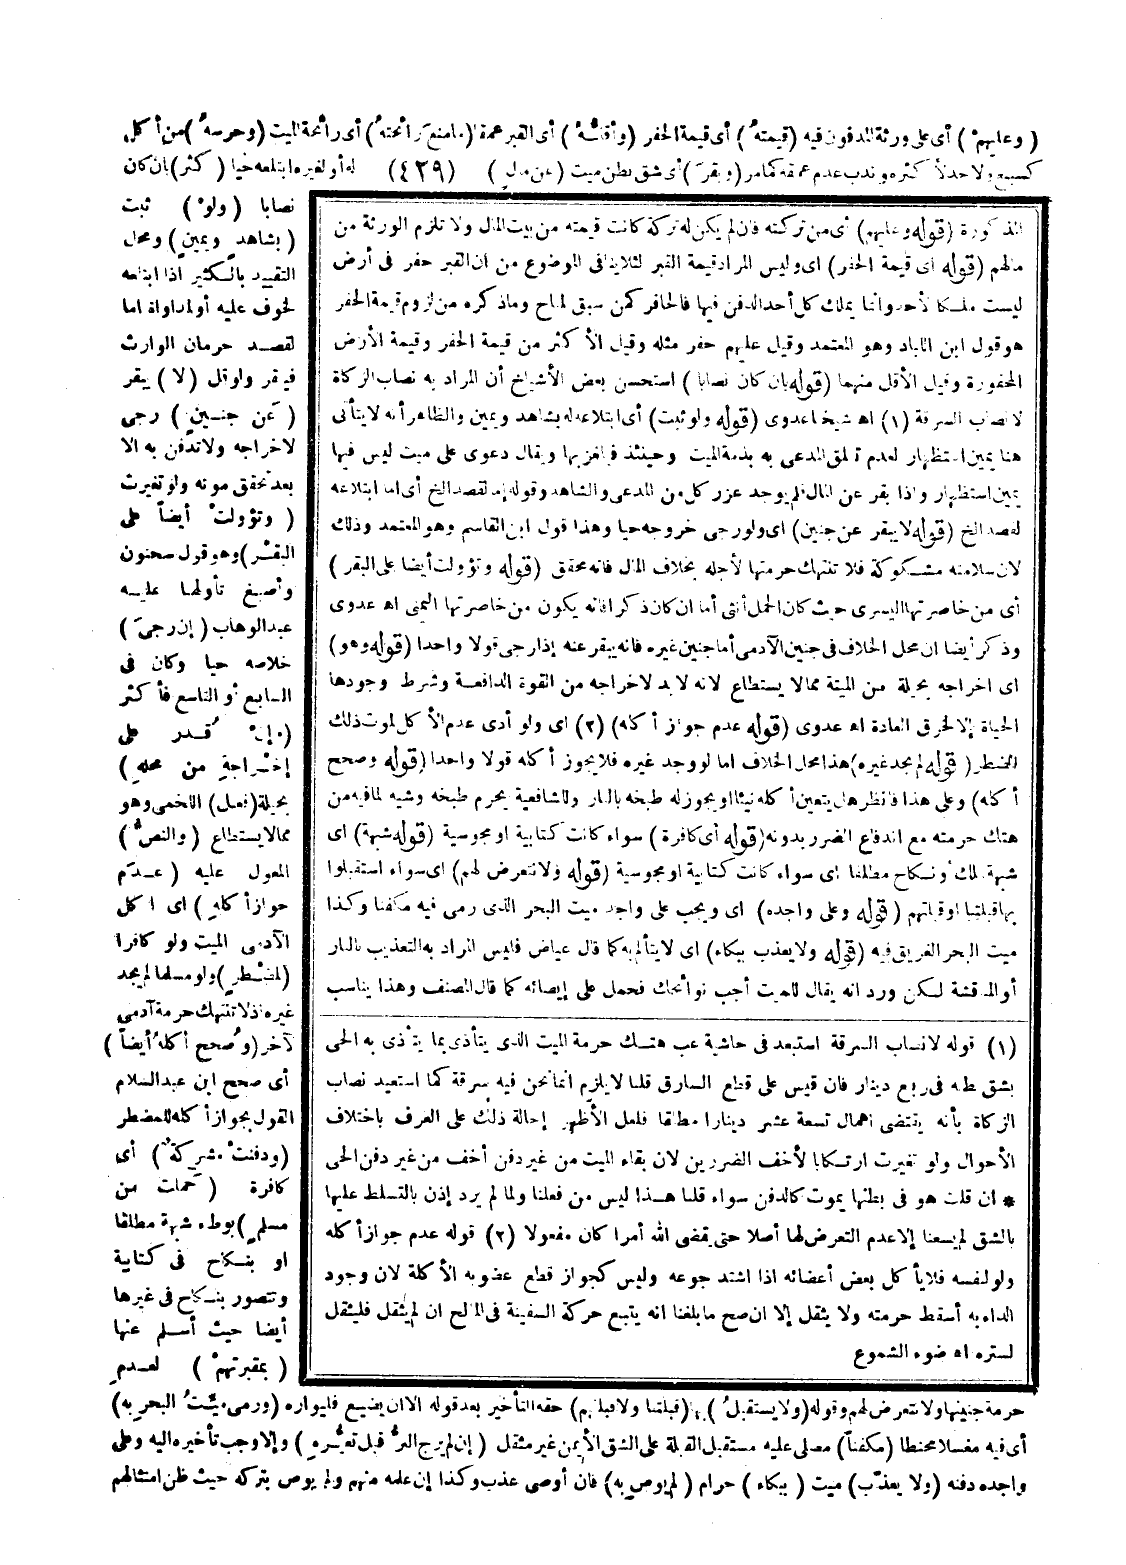 ( وعليهم ) أى على ورثة المدفون فيه ( قيمته ) أى قيمة الحفر ( وأقله ) أى القبر عمقا ( ما منع رائحته ) أى رائحة الميت ( وحرسه ) من أكل
كسبع ولا حد لأكثره وندب عدم عمقه كما مر ( وبقر ) أى شق بطن ميت ( عن مال ) (٤٢٩) له أو لغيره ابتلعه حيا ( كثر ) بان كان
نصابا ( ولو ) ثبت
( بشاهد ويمين ) ومحل
التقييد بالكثير اذا ابتلعه
لخوف عليه أو لمداواة اما
لقصد حرمان الوارث
فيبقر ولو قل ( لا ) يبقر
( عن جنين ) رجى
لاخراجه ولا تدفن به الا
بعد تحقق موته ولو تغيرت
( وتؤولت أيضا على
البقر ) وهو قول سحنون
وأصبغ تأولها عليه
عبد الوهاب ( إن رجى )
خلاصه حيا وكان فى
السابع أو التاسع فأكثر
( وإن قدر على
إخراجه من محله )
بحيلة ( فعل ) اللخمى وهو
مما لا يستطاع ( والنص )
المعول عليه ( عدم
جواز أكله ) اى اكل
الآدمى الميت ولو كافرا
( لمضطر ) ولو مسلما لم يجد
غيره اذ لا تنتهك حرمة آدمى
لآخر ( وصحح أكله أيضا )
أى صحح ابن عبد السلام
القول بجواز أكله للمضطر
( ودفنت مشركة ) أى
كافرة ( حملت من
مسلم ) بوطء شبهة مطلقا
او بنكاح فى كتابية
وتتصور بنكاح فى غيرها
أيضا حيث أسلم عنها
( بمقبرتهم ) لعدم
حرمة جنينها ولا نتعرض لهم وقوله ( ولا يستقبل ) بها ( قبلتنا ولا قبلتهم ) حقه التأخير بعد قوله الا ان يضيع فليواره ( ورمى ميت البحر به )
أى فيه مغسلا محنطا ( مكفنا ) مصلى عليه مستقبل القبلة على الشق الأيمن غير مثقل ( إن لم يرج البر قبل تغيره ) وإلا وجب تأخيره اليه وعلى
واجده دفنه ( ولا يعذب ) ميت ( ببكاء ) حرام ( لم يوص به ) فان أوصى عذب وكذا إن علمه منهم ولم يوص بتركه حيث ظن امتثالهم
المذكورة ( قوله وعليهم ) أى من تركته فان لم يكن له تركة كانت قيمته من بيت المال ولا تلزم الورثة من
مالهم ( قوله أى قيمة الحفر ) اى وليس المراد قيمة القبر لئلا ينافى الموضوع من ان القبر حفر فى أرض
ليست ملكا لأحد وانما يملك كل أحد الدفن فيها فالحافر كمن سبق لمباح وما ذكره من لزوم قيمة الحفر
هو قول ابن اللباد وهو المعتمد وقيل عليهم حفر مثله وقيل الأكثر من قيمة الحفر وقيمة الأرض
المحفورة وقيل الأقل منهما ( قوله بان كان نصابا ) استحسن بعض الأشياخ أن المراد به نصاب الزكاة
لا نصاب السرقة (١) اه شيخنا عدوى ( قوله ولو ثبت ) أى ابتلاعه له بشاهد ويمين والظاهر أنه لا يتأتى
هنا يمين استظهار لعدم تعلق المدعى به بذمة الميت وحينئذ فيلغز بها ويقال دعوى على ميت ليس فيها
يمين استظهار واذا بقر عن المال فلم يوجد عزر كل من المدعى والشاهد وقوله إما لقصد الخ أى اما ابتلاعه
لقصد الخ ( قوله لا يبقر عن جنين ) اى ولو رجى خروجه حيا وهذا قول ابن القاسم وهو المعتمد وذلك
لان سلامته مشكوكة فلا تنتهك حرمتها لأجله بخلاف المال فانه محقق ( قوله وتؤولت أيضا على البقر )
أى من خاصرتها اليسرى حيث كان الحمل أنثى أما ان كان ذكرا فانه يكون من خاصرتها اليمنى اه عدوى
وذكر أيضا ان محل الخلاف فى جنين الآدمى أما جنين غيره فانه يبقر عنه إذا رجى قولا واحدا ( قوله وهو )
اى اخراجه بحيلة من الميتة مما لا يستطاع لانه لا بد لاخراجه من القوة الدافعة وشرط وجودها
الحياة إلا لخرق العادة اه عدوى ( قوله عدم جواز أكله ) (٢) اى ولو أدى عدم الأكل لموت ذلك
المضطر ( قوله لم يجد غيره ) هذا محل الخلاف اما لو وجد غيره فلا يجوز أكله قولا واحدا ( قوله وصحح
أكله ) وعلى هذا فانظر هل يتعين أكله نيئا او يجوز له طبخه بالنار وللشافعية يحرم طبخه وشيه لما فيه من
هتك حرمته مع اندفاع الضرر بدونه ( قوله أى كافرة ) سواء كانت كتابية او مجوسية ( قوله شبهة ) اى
شبهة ملك أو نكاح مطلقا اى سواء كانت كتابية او مجوسية ( قوله ولا نتعرض لهم ) اى سواء استقبلوا
بها قبلتنا او قبلتهم ( قوله وعلى واجده ) اى ويجب على واجد ميت البحر الذى رمى فيه مكفنا وكذا
ميت البحر الغريق فيه ( قوله ولا يعذب ببكاء ) اى لا يتألم به كما قال عياض فليس المراد به التعذيب بالنار
أو المناقشة لكن ورد انه يقال للميت أجب نوائحك فحمل على إيصائه كما قال المصنف وهذا يناسب
(١) قوله لا نصاب السرقة استبعد فى حاشية عب هتك حرمة الميت الذى يتأذى بما يتأذى به الحى
بشق بطنه فى ربع دينار فان قيس على قطع السارق قلنا لا يلزم انما نحن فيه سرقة كما استعيد نصاب
الزكاة بأنه يقتضى اهمال تسعة عشر دينارا مطلقا فلعل الأظهر إحالة ذلك على العرف باختلاف
الأحوال ولو تغيرت ارتكابا لأخف الضررين لان بقاء الميت من غير دفن أخف من غير دفن الحى
* ان قلت هو فى بطنها يموت كالدفن سواء قلنا هذا ليس من فعلنا ولما لم يرد إذن بالتسلط عليها
بالشق لم يسعنا إلا عدم التعرض لها أصلا حتى يقضى الله أمرا كان مفعولا (٢) قوله عدم جواز أكله
ولو لنفسه فلا يأكل بعض أعضائه اذا اشتد جوعه وليس كجواز قطع عضو به الأكلة لان وجود
الداء به أسقط حرمته ولا يثقل إلا ان صح ما بلغنا انه يتبع حركة السفينة فى المالح ان لم يثقل فليثقل
لستره اه ضوء الشموع